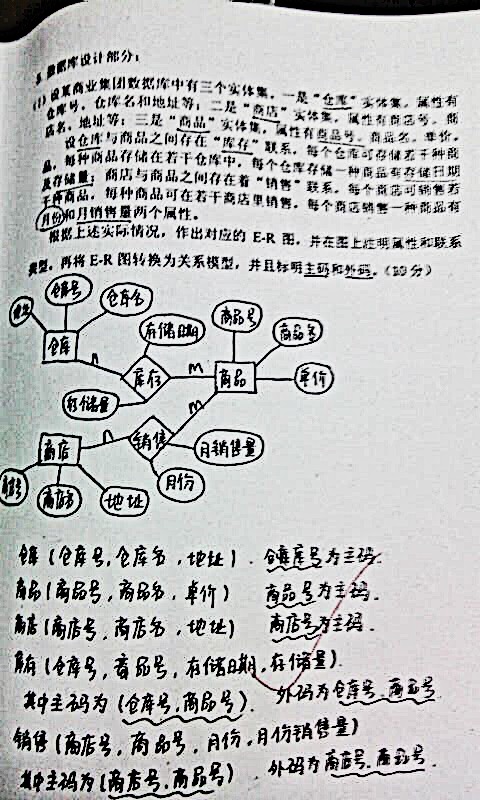 数据库设计部分:
(1) 设某商业集团数据库中有三个实体集。一是“仓库”实体集,属性有
仓库号、仓库名和地址等;二是“商店”实体集,属性有商店号、商
店名、地址等;三是“商品”实体集,属性有商品号、商品名、单价。
设仓库与商品之间存在“库存”联系,每个仓库可存储若干种商
品,每种商品存储在若干仓库中,每个仓库存储一种商品有存储日期
及存储量;商店与商品之间存在着“销售”联系,每个商店可销售若
干种商品,每种商品可在若干商店里销售,每个商店销售一种商品有
月份和月销售量两个属性。
根据上述实际情况,作出对应的 E-R 图,并在图上注明属性和联系
类型,再将 E-R 图转换为关系模型,并且标明主码和外码。(20分)
仓库号
仓库名
地址
存储日期
商品号
商品名
仓库
n
库存
m
商品
单价
存储量
m
商店
n
销售
月销售量
商店号
商店名
地址
月份
仓库(仓库号,仓库名,地址). 仓库号为主码.
商品(商品号,商品名,单价) 商品号为主码.
商店(商店号,商店名,地址) 商店号为主码.
库存(仓库号,商品号,存储日期,存储量).
其中主码为(仓库号,商品号). 外码为仓库号,商品号
销售(商店号,商品号,月份,月份销售量)
其中主码为(商店号,商品号) 外码为商店号,商品号.